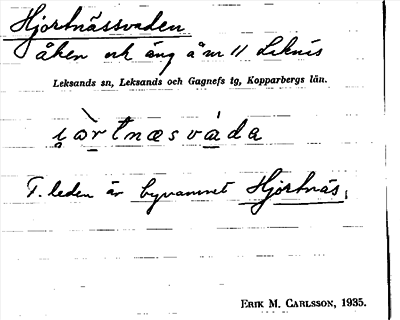 Hjortnässvaden
åker och äng å nr 11 Leknis
Leksands sn, Leksands och Gagnefs tg, Kopparbergs län.
F. leden är bynamnet Hjortnäs.
ERIK M. CARLSSON, 1935.